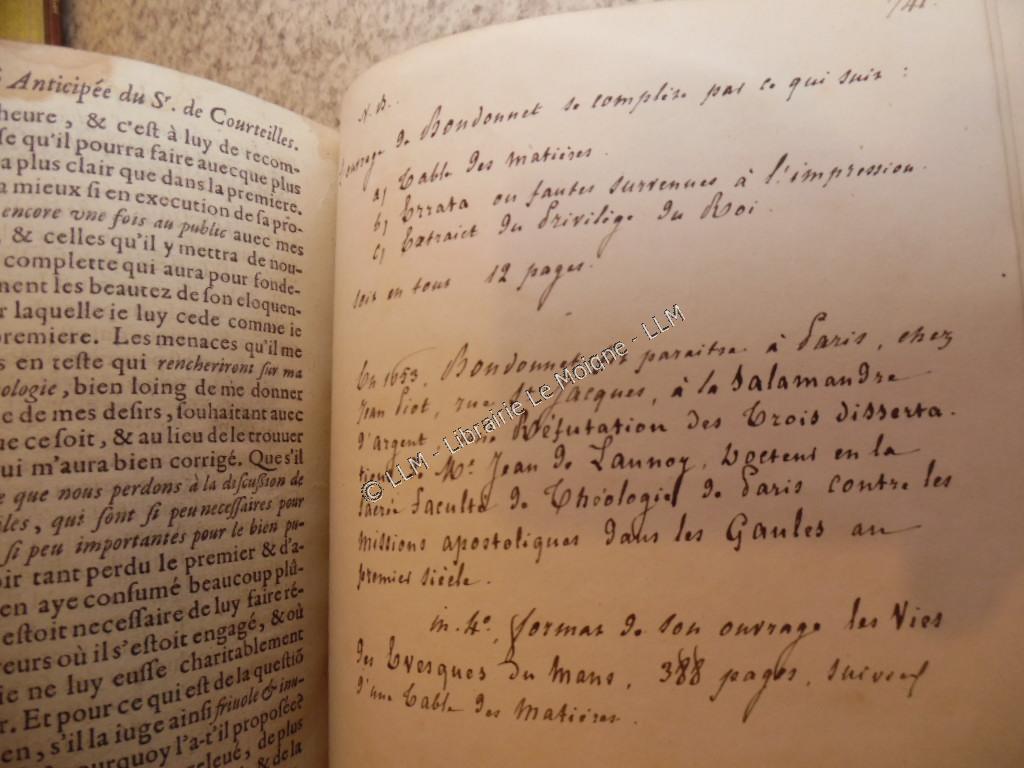 Anticipée du Sr. de Courteilles.
heure, & c'est à luy de recom-
se qu'il pourra faire auecque plus
a plus clair que dans la premiere.
a mieux si en execution de sa pro-
encore vne fois au public auec mes
, & celles qu'il y mettra de nou-
complette qui aura pour fonde-
ment les beautez de son eloquen-
r laquelle ie luy cede comme ie
premiere. Les menaces qu'il me
s en teste qui rencheriront sur ma
ologie, bien loing de me donner
e de mes desirs, souhaitant auec
ue ce soit, & au lieu de le trouuer
ui m'aura bien corrigé. Que s'il
e que nous perdons à la discussion de
les, qui sont si peu necessaires pour
si peu importantes pour le bien pu-
oir tant perdu le premier & d'a-
en aye consumé beaucoup plû-
estoit necessaire de luy faire ré-
reurs où il s'estoit engagé, & où
ie ne luy eusse charitablement
r. Et pour ce qui est de la questiõ
en, s'il la iuge ainsi friuole & inu-
pourquoy l'a-t'il proposée?
releué, de plus
& de la
741.
N. B.
L'ouvrage de Bondonnet se complète par ce qui suit :
a) Table des matières.
b) Errata ou fautes survenues à l'impression.
c) Extraict du Privilige du Roi.
soit en tout 12 pages.
En 1653, Bondonnet fit paraitre à Paris, chez
Jean Piot, rue St Jacques, à la Salamandre
d'argent, la Réfutation des Trois disserta-
tions de Mr. Jean de Launoy, Docteur en la
sacrée Faculté de Théologie de Paris contre les
missions apostoliques dans les Gaules au
premier siècle.
in-4o, format de son ouvrage les Vies
des Evesques du Mans, 388 pages, suivies
d'une Table des Matières.
© LLM - Librairie Le Moigne - LLM